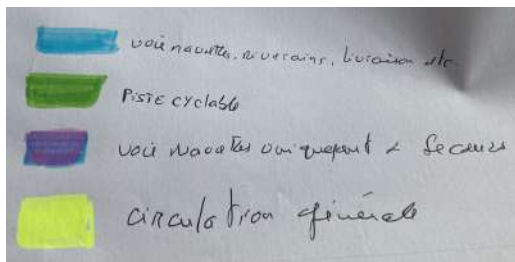 voie navettes, riverains, livraison etc.
PISTE CYCLABLE
voie navettes uniquement & Secours
circulation générale